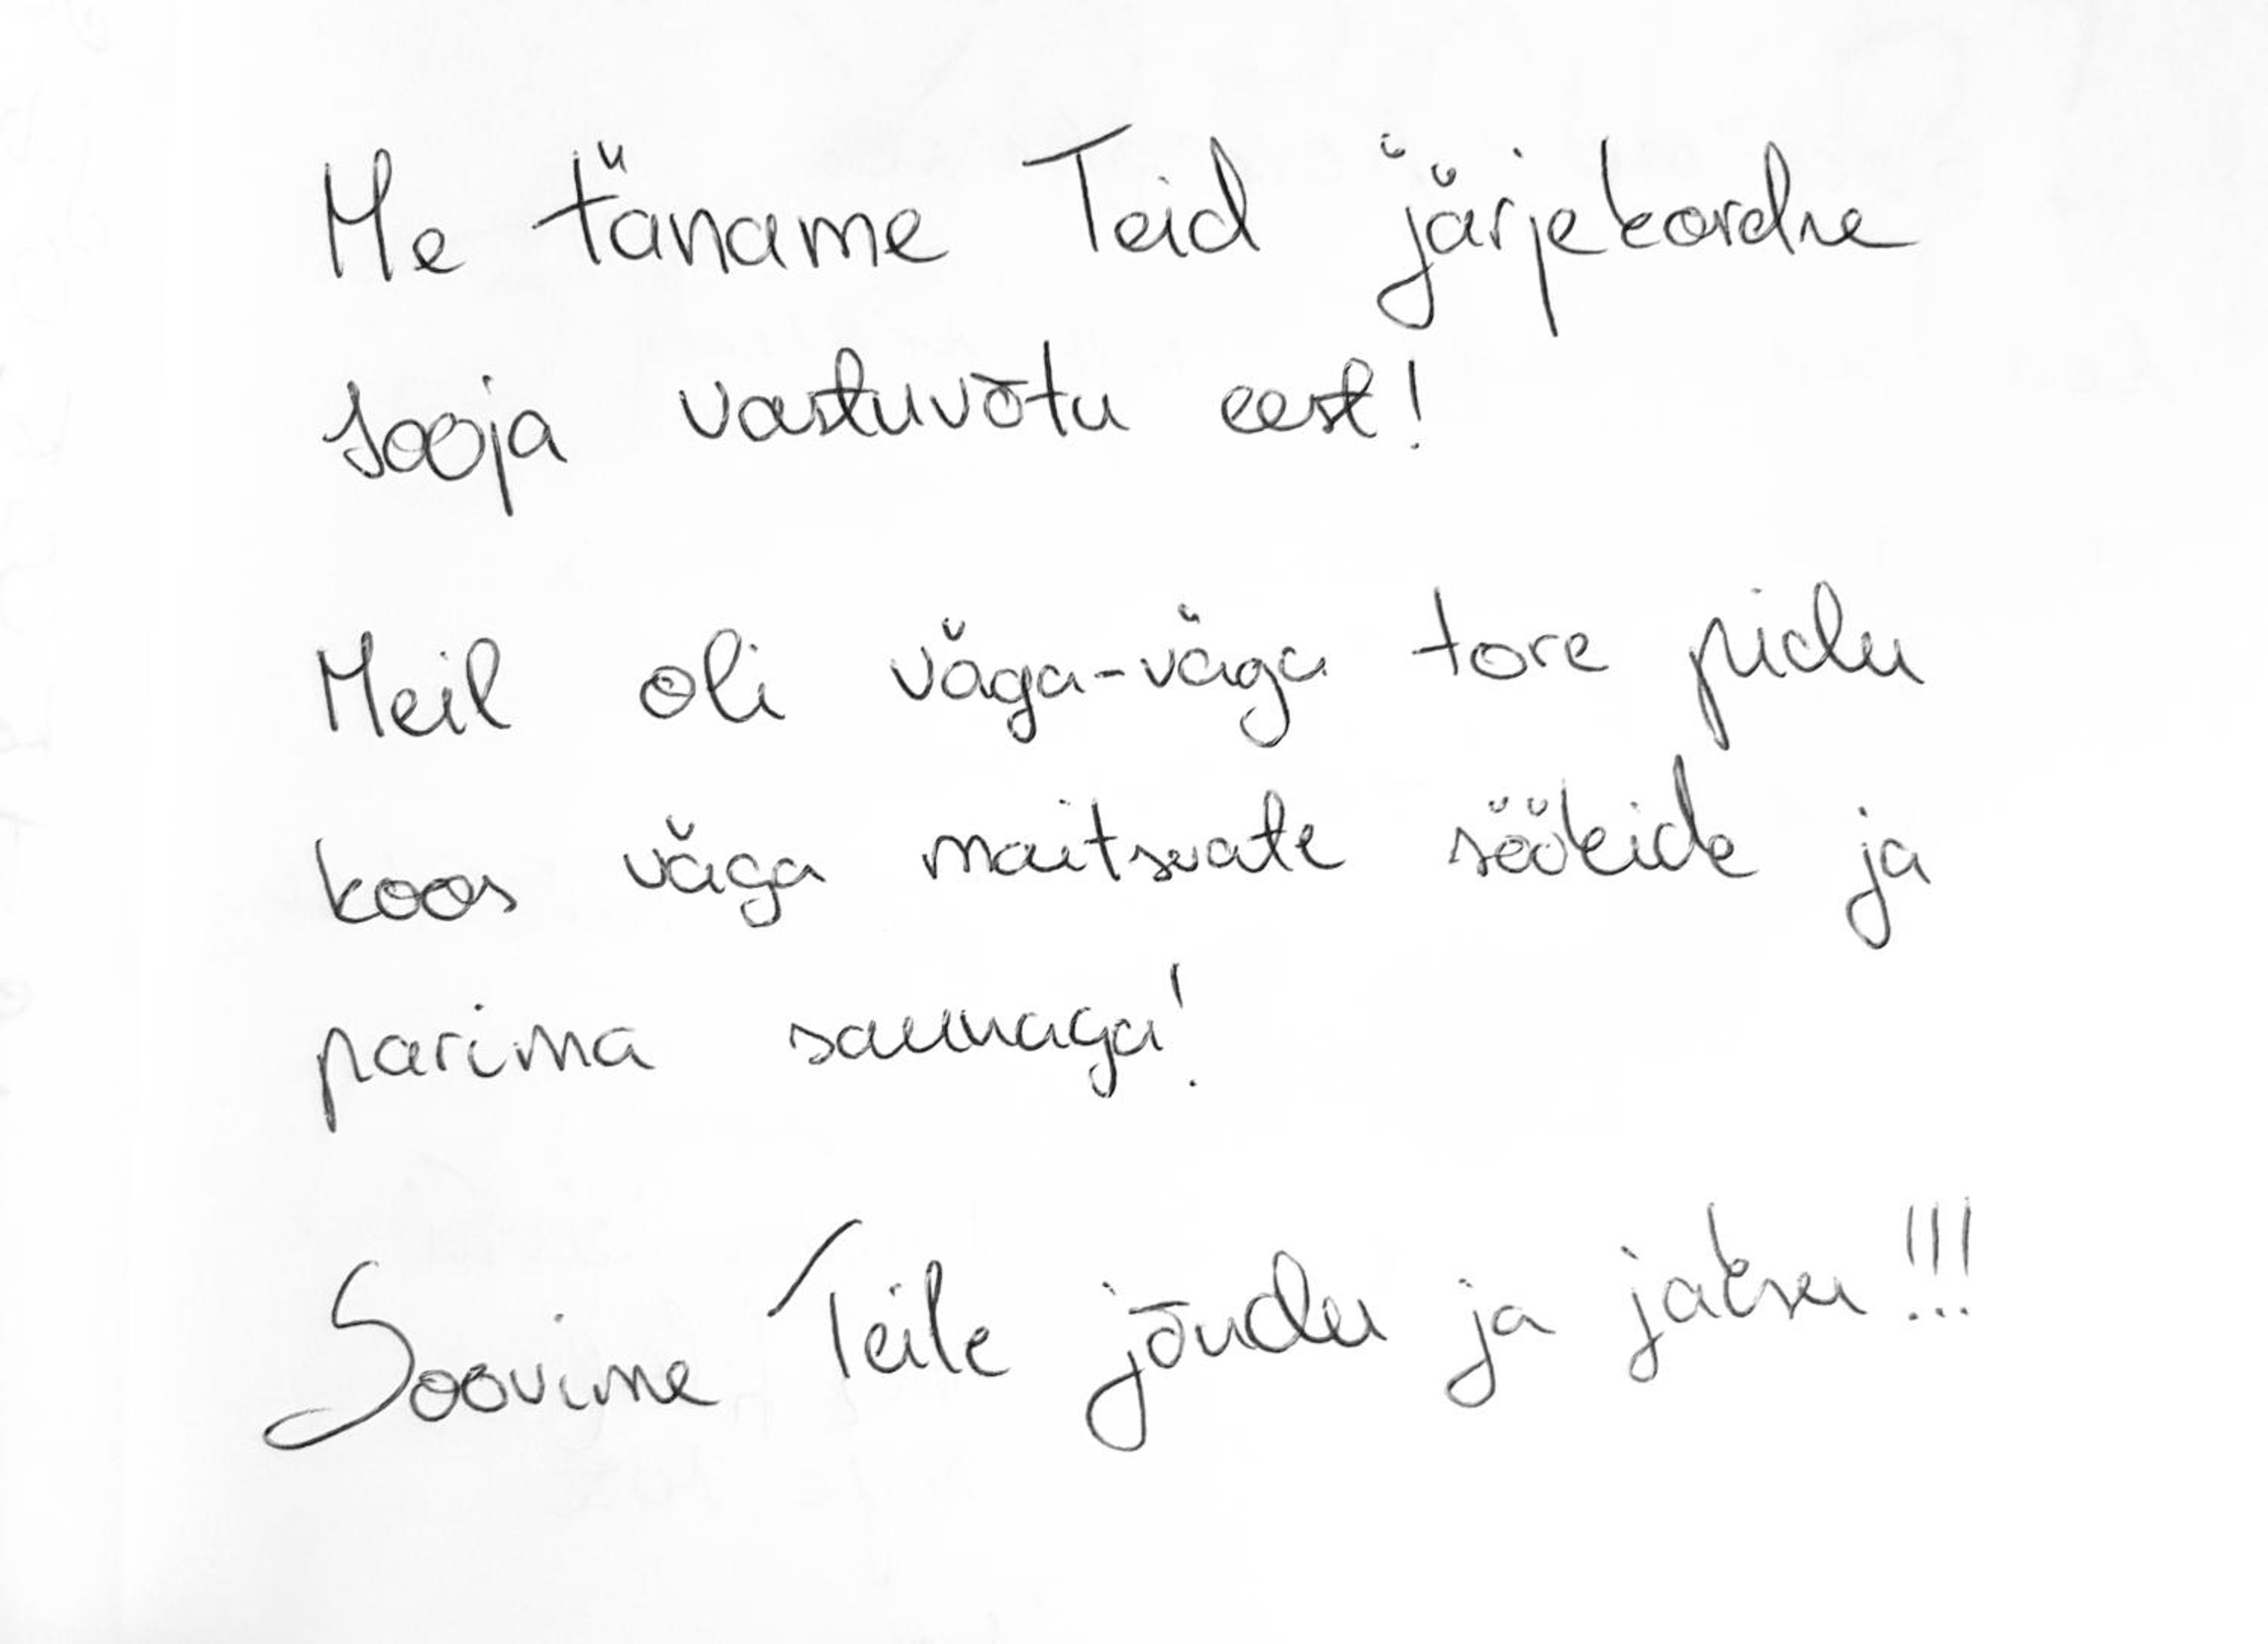 Me täname Teid järjekordne
sooja vastuvõtu eest!
Meil oli väga-väga tore pidu
koos väga maitsvate söökide ja
parima saunaga!
Soovime Teile jõudu ja jaksu!!!